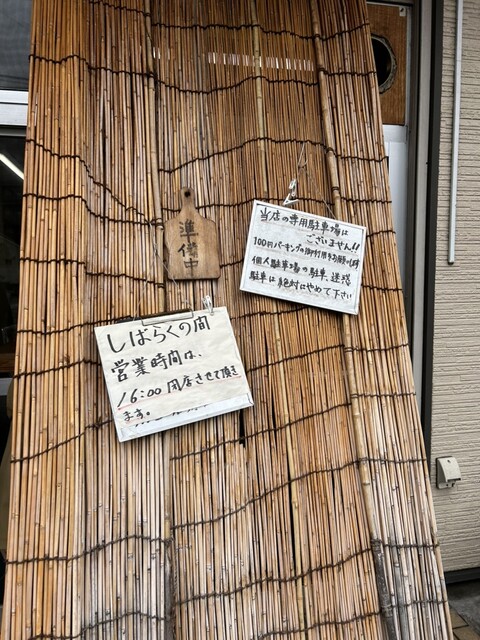 準備中
当店の専用駐車場は
ございません!!
100円パーキングの御利用をお願い致します
個人駐車場の駐車、迷惑
駐車は絶対にやめて下さい
しばらくの間
営業時間は、
16:00 閉店させて頂き
ます。